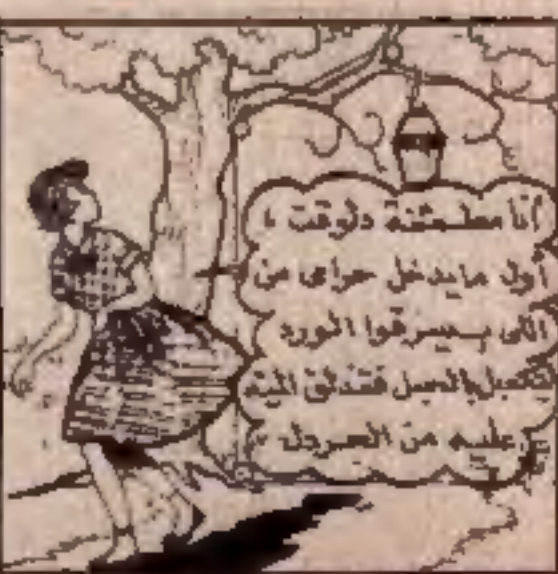 أنا مطمئنة دلوقت ،
أول ما يدخل حرامى من
اللى بيسرقوا الورد
يتكعبل بالحبل فتندلق الميّه
عليه من الجردل